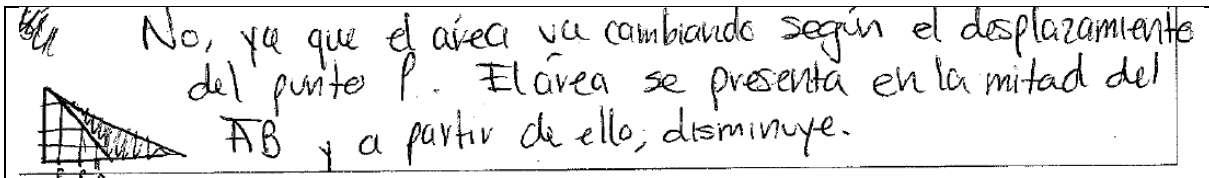 No, ya que el área va cambiando según el desplazamiento
del punto P. El área se presenta en la mitad del
AB y a partir de ello, disminuye.